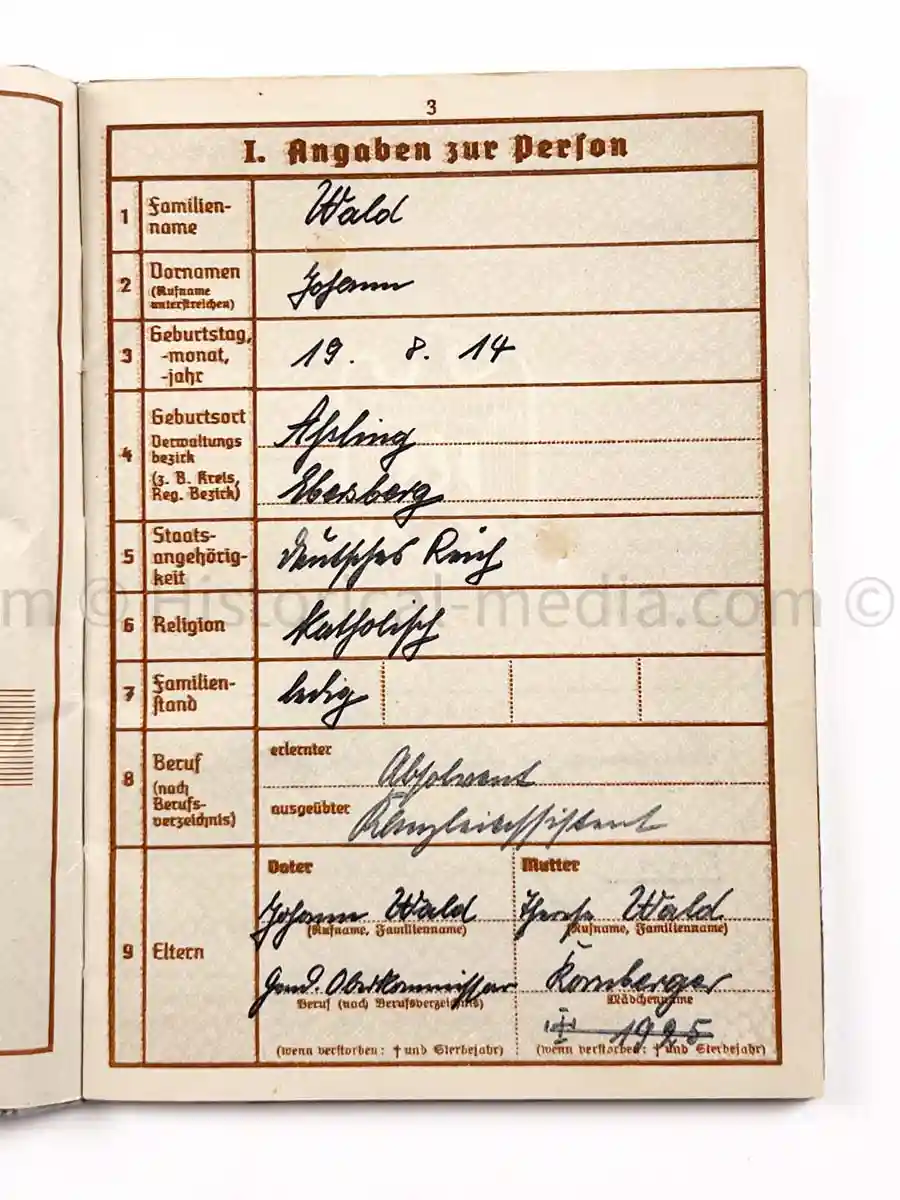 3
I. Angaben zur Person
1 Familien-
name
Wald
2 Vornamen
(Rufname
unterstreichen)
Johann
3 Geburtstag,
-monat,
-jahr
19. 8. 14
4 Geburtsort
Verwaltungs
bezirk
(z. B. Kreis,
Reg. Bezirk)
Aßling
Ebersberg
5 Staats-
angehörig-
keit
Deutsches Reich
m © Historical-media.com ©
6 Religion
katholisch
7 Familien-
stand
ledig
8 Beruf
(nach
Berufs-
verzeichnis)
erlernter
Absolvent
ausgeübter
Kanzleiassistent
9 Eltern
Vater
Johann Wald
(Rufname, Familienname)
Gend. Oberkommissar
Beruf (nach Berufsverzeichnis)
(wenn verstorben: † und Sterbejahr)
Mutter
Therese Wald
(Rufname, Familienname)
Kornberger
Mädchenname
1925
(wenn verstorben: † und Sterbejahr)